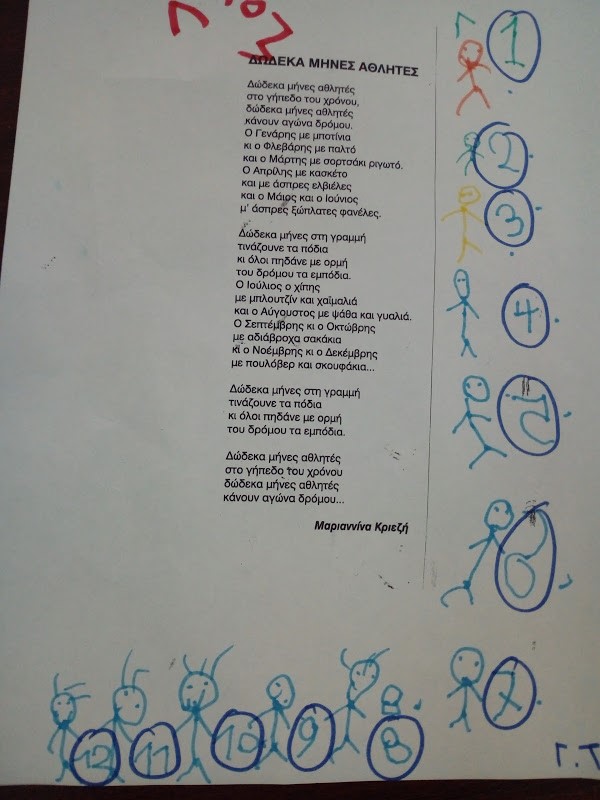 ΔΩΔΕΚΑ ΜΗΝΕΣ ΑΘΛΗΤΕΣ
Δώδεκα μήνες αθλητές
στο γήπεδο του χρόνου,
δώδεκα μήνες αθλητές
κάνουν αγώνα δρόμου.
Ο Γενάρης με μποτίνια
κι ο Φλεβάρης με παλτό
και ο Μάρτης με σορτσάκι ριγωτό.
Ο Απρίλης με κασκέτο
και με άσπρες ελβιέλες
και ο Μάιος και ο Ιούνιος
μ' άσπρες ξώπλατες φανέλες.
Δώδεκα μήνες στη γραμμή
τινάζουνε τα πόδια
κι όλοι πηδάνε με ορμή
του δρόμου τα εμπόδια.
Ο Ιούλιος ο χίπης
με μπλουτζίν και χαϊμαλιά
και ο Αύγουστος με ψάθα και γυαλιά.
Ο Σεπτέμβρης κι ο Οκτώβρης
με αδιάβροχα σακάκια
κι ο Νοέμβρης κι ο Δεκέμβρης
με πουλόβερ και σκουφάκια...
Δώδεκα μήνες στη γραμμή
τινάζουνε τα πόδια
κι όλοι πηδάνε με ορμή
του δρόμου τα εμπόδια.
Δώδεκα μήνες αθλητές
στο γήπεδο του χρόνου
δώδεκα μήνες αθλητές
κάνουν αγώνα δρόμου...
Μαριαννίνα Κριεζή
1
2
3
4
5
6
7
12 11 10 9 8